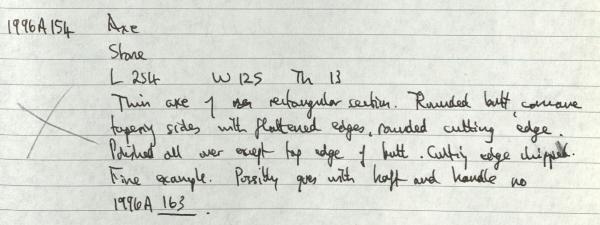 1996A154 Axe
Stone
L 254 W 125 Th 13
Thin axe of rectangular section. Rounded butt, concave
tapering sides with flattened edges, rounded cutting edge.
Polished all over except top edge of butt. Cutting edge chipped.
Fine example. Possibly goes with haft and handle no
1996A 163.